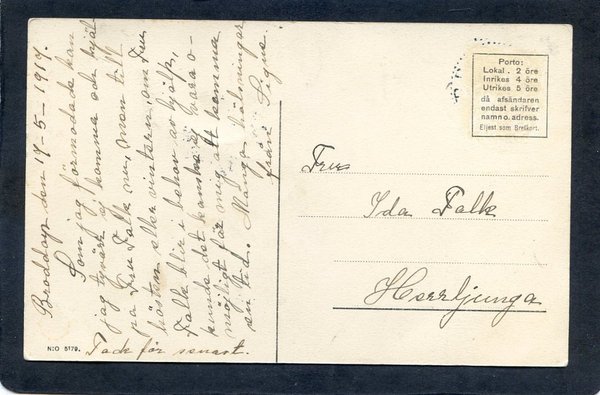 Broddarp den 17-5-1917.
Som jag förmodade kan
jag tyvärr ej komma och hjäl
pa Fru Falk nu, men till
hösten eller vintern, om Fru
Falk blir i behov av hjälp,
kunde det kanske vara
möjligt för mig att komma
en tid. Många hälsningar
från Signe.
Tack för senast.
N:O 5179.
Porto:
Lokal. 2 öre
Inrikes 4 öre
Utrikes 5 öre
då afsändaren
endast skrifver
namn o. adress.
Eljest som Brefkort.
Fru
Ida Falk
Herrljunga